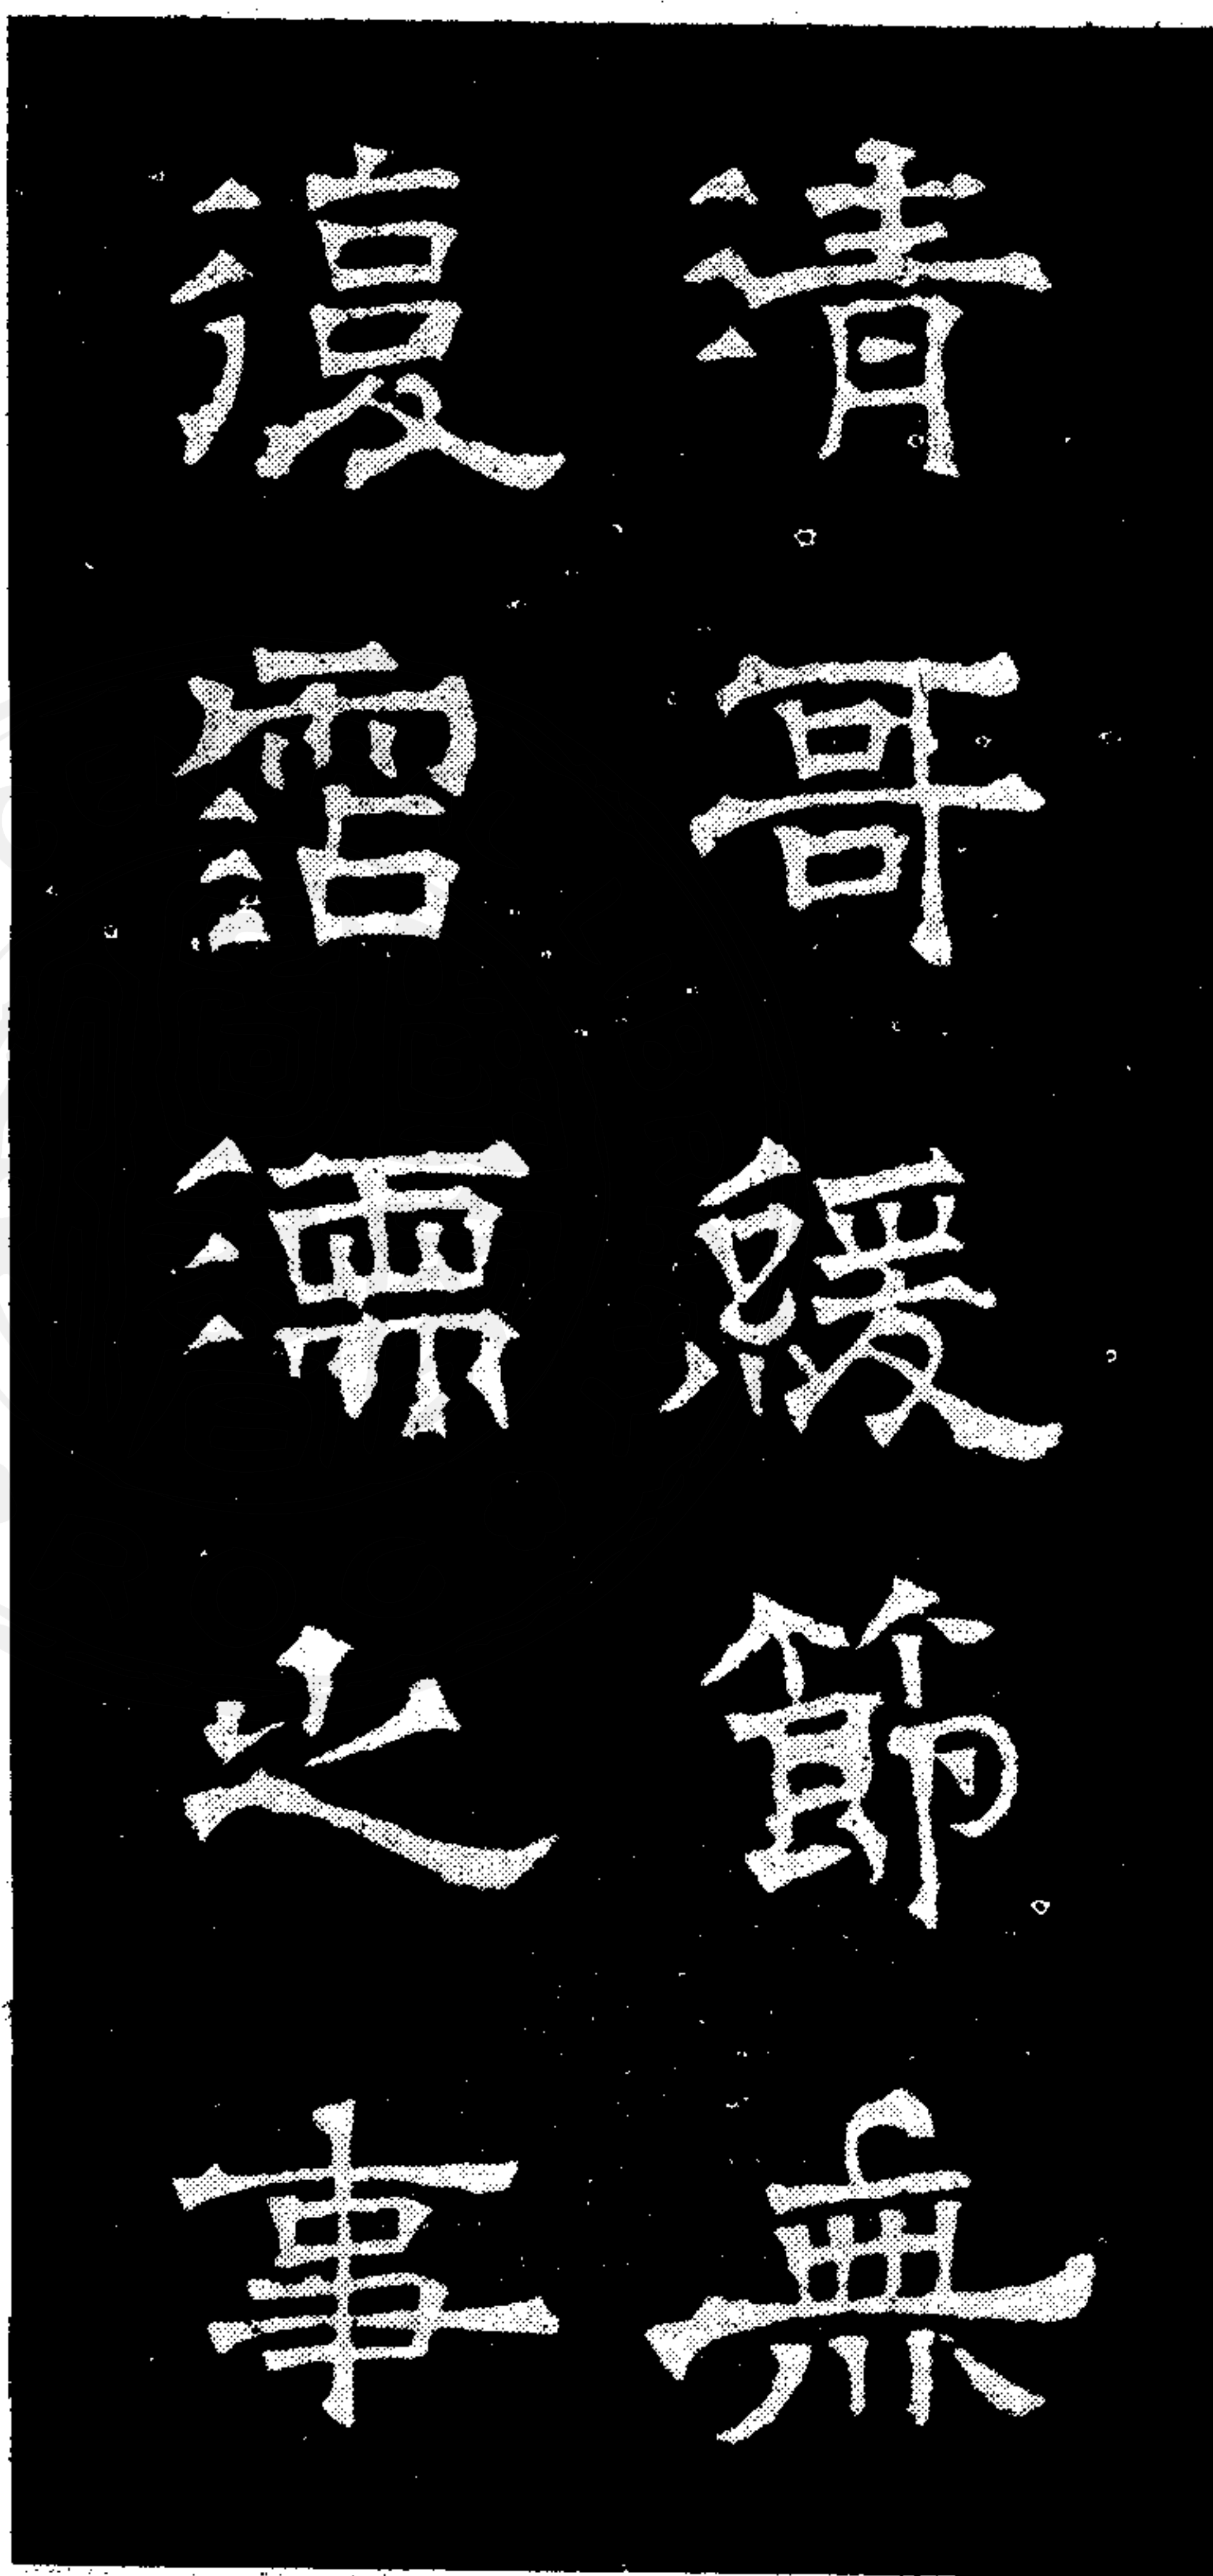 清哥緩節無
復霑濡之事